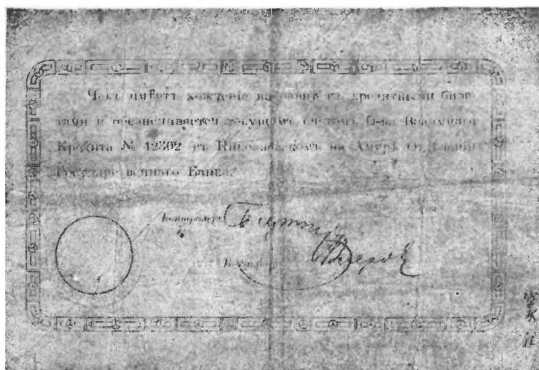 Чекъ имѣетъ хожденіе наравнѣ съ кредитными биле-
тами и обезпечивается текущимъ счетомъ О-ва Взаимнаго
Кредита № 12302 въ Николаевскомъ на Амурѣ Отдѣленіи
Государственнаго Банка.
Контролеръ